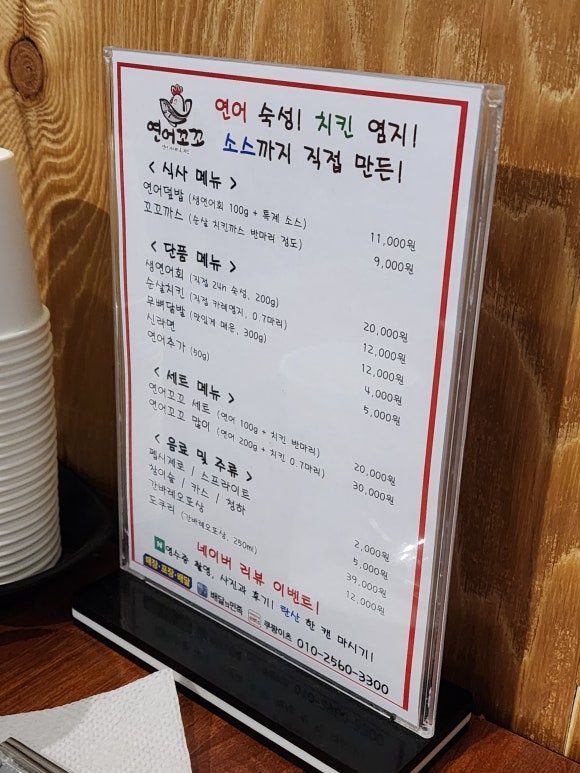 연어꼬꼬
연어 숙성! 치킨 염지!
소스까지 직접 만든!
< 식사 메뉴 >
연어덮밥 (생연어회 100g + 특제 소스) 11,000원
꼬꼬까스 (순살 치킨까스 반마리 정도) 9,000원
< 단품 메뉴 >
생연어회 (직접 24h 숙성, 200g) 20,000원
순살치킨 (직접 카레염지, 0.7마리) 12,000원
무뼈닭발 (맛있게 매운, 300g) 12,000원
신라면 4,000원
연어추가 (50g) 5,000원
< 세트 메뉴 >
연어꼬꼬 세트 (연어 100g + 치킨 반마리) 20,000원
연어꼬꼬 많이 (연어 200g + 치킨 0.7마리) 30,000원
< 음료 및 주류 >
펩시제로 / 스프라이트 2,000원
참이슬 / 카스 / 청하 5,000원
간바레오또상 39,000원
도쿠리 (간바레오또상, 250ml) 12,000원
네이버 리뷰 이벤트!
N 영수증 촬영, 사진과 후기! 탄산 한 캔 마시기!
매장·포장·배달 배달의민족 쿠팡이츠 010-2560-3300